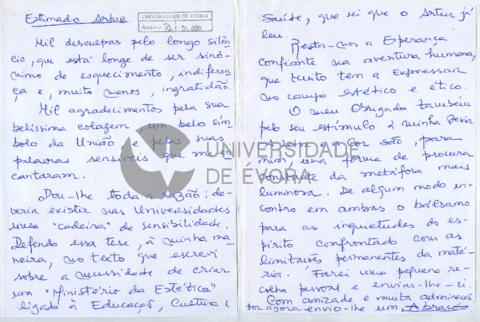 Estimado Artur
UNIVERSIDADE DE ÉVORA
Mil desculpas pelo longo silên-
cio, que está longe de ser sinó-
nimo de esquecimento, indiferen-
ça e, muito menos, ingratidão.
Mil agradecimentos pela sua
belíssima colagem, um belo sím-
bolo da União e pelas suas
palavras sensíveis que me en-
cantaram.
Dou-lhe toda a razão: de-
veria existir nas Universidades
uma "cadeira" de sensibilidade.
Defendo essa tese, à minha ma-
neira, no texto que escrevi
sobre a necessidade de criar
um "Ministério da Estética"
ligado à Educação, Cultura e
Saúde, que sei que o Artur já
leu.
Resta-nos a Esperança
confiante na aventura humana,
que muito tem a Expressar
no campo estético e ético.
O meu Obrigado também
pelo seu estímulo à minha Poesia
e a Cor são, para
mim, uma forma de procura
constante da metáfora mais
luminosa. De algum modo en-
contro em ambas o bálsamo
para as inquietudes do es-
pírito confrontado com as
limitações permanentes da maté-
ria. Farei uma pequena re-
colha pessoal e enviar-lhe-ei.
Com amizade e muita admiração
por agora envio-lhe um Abraço
UNIVERSIDADE
DE ÉVORA